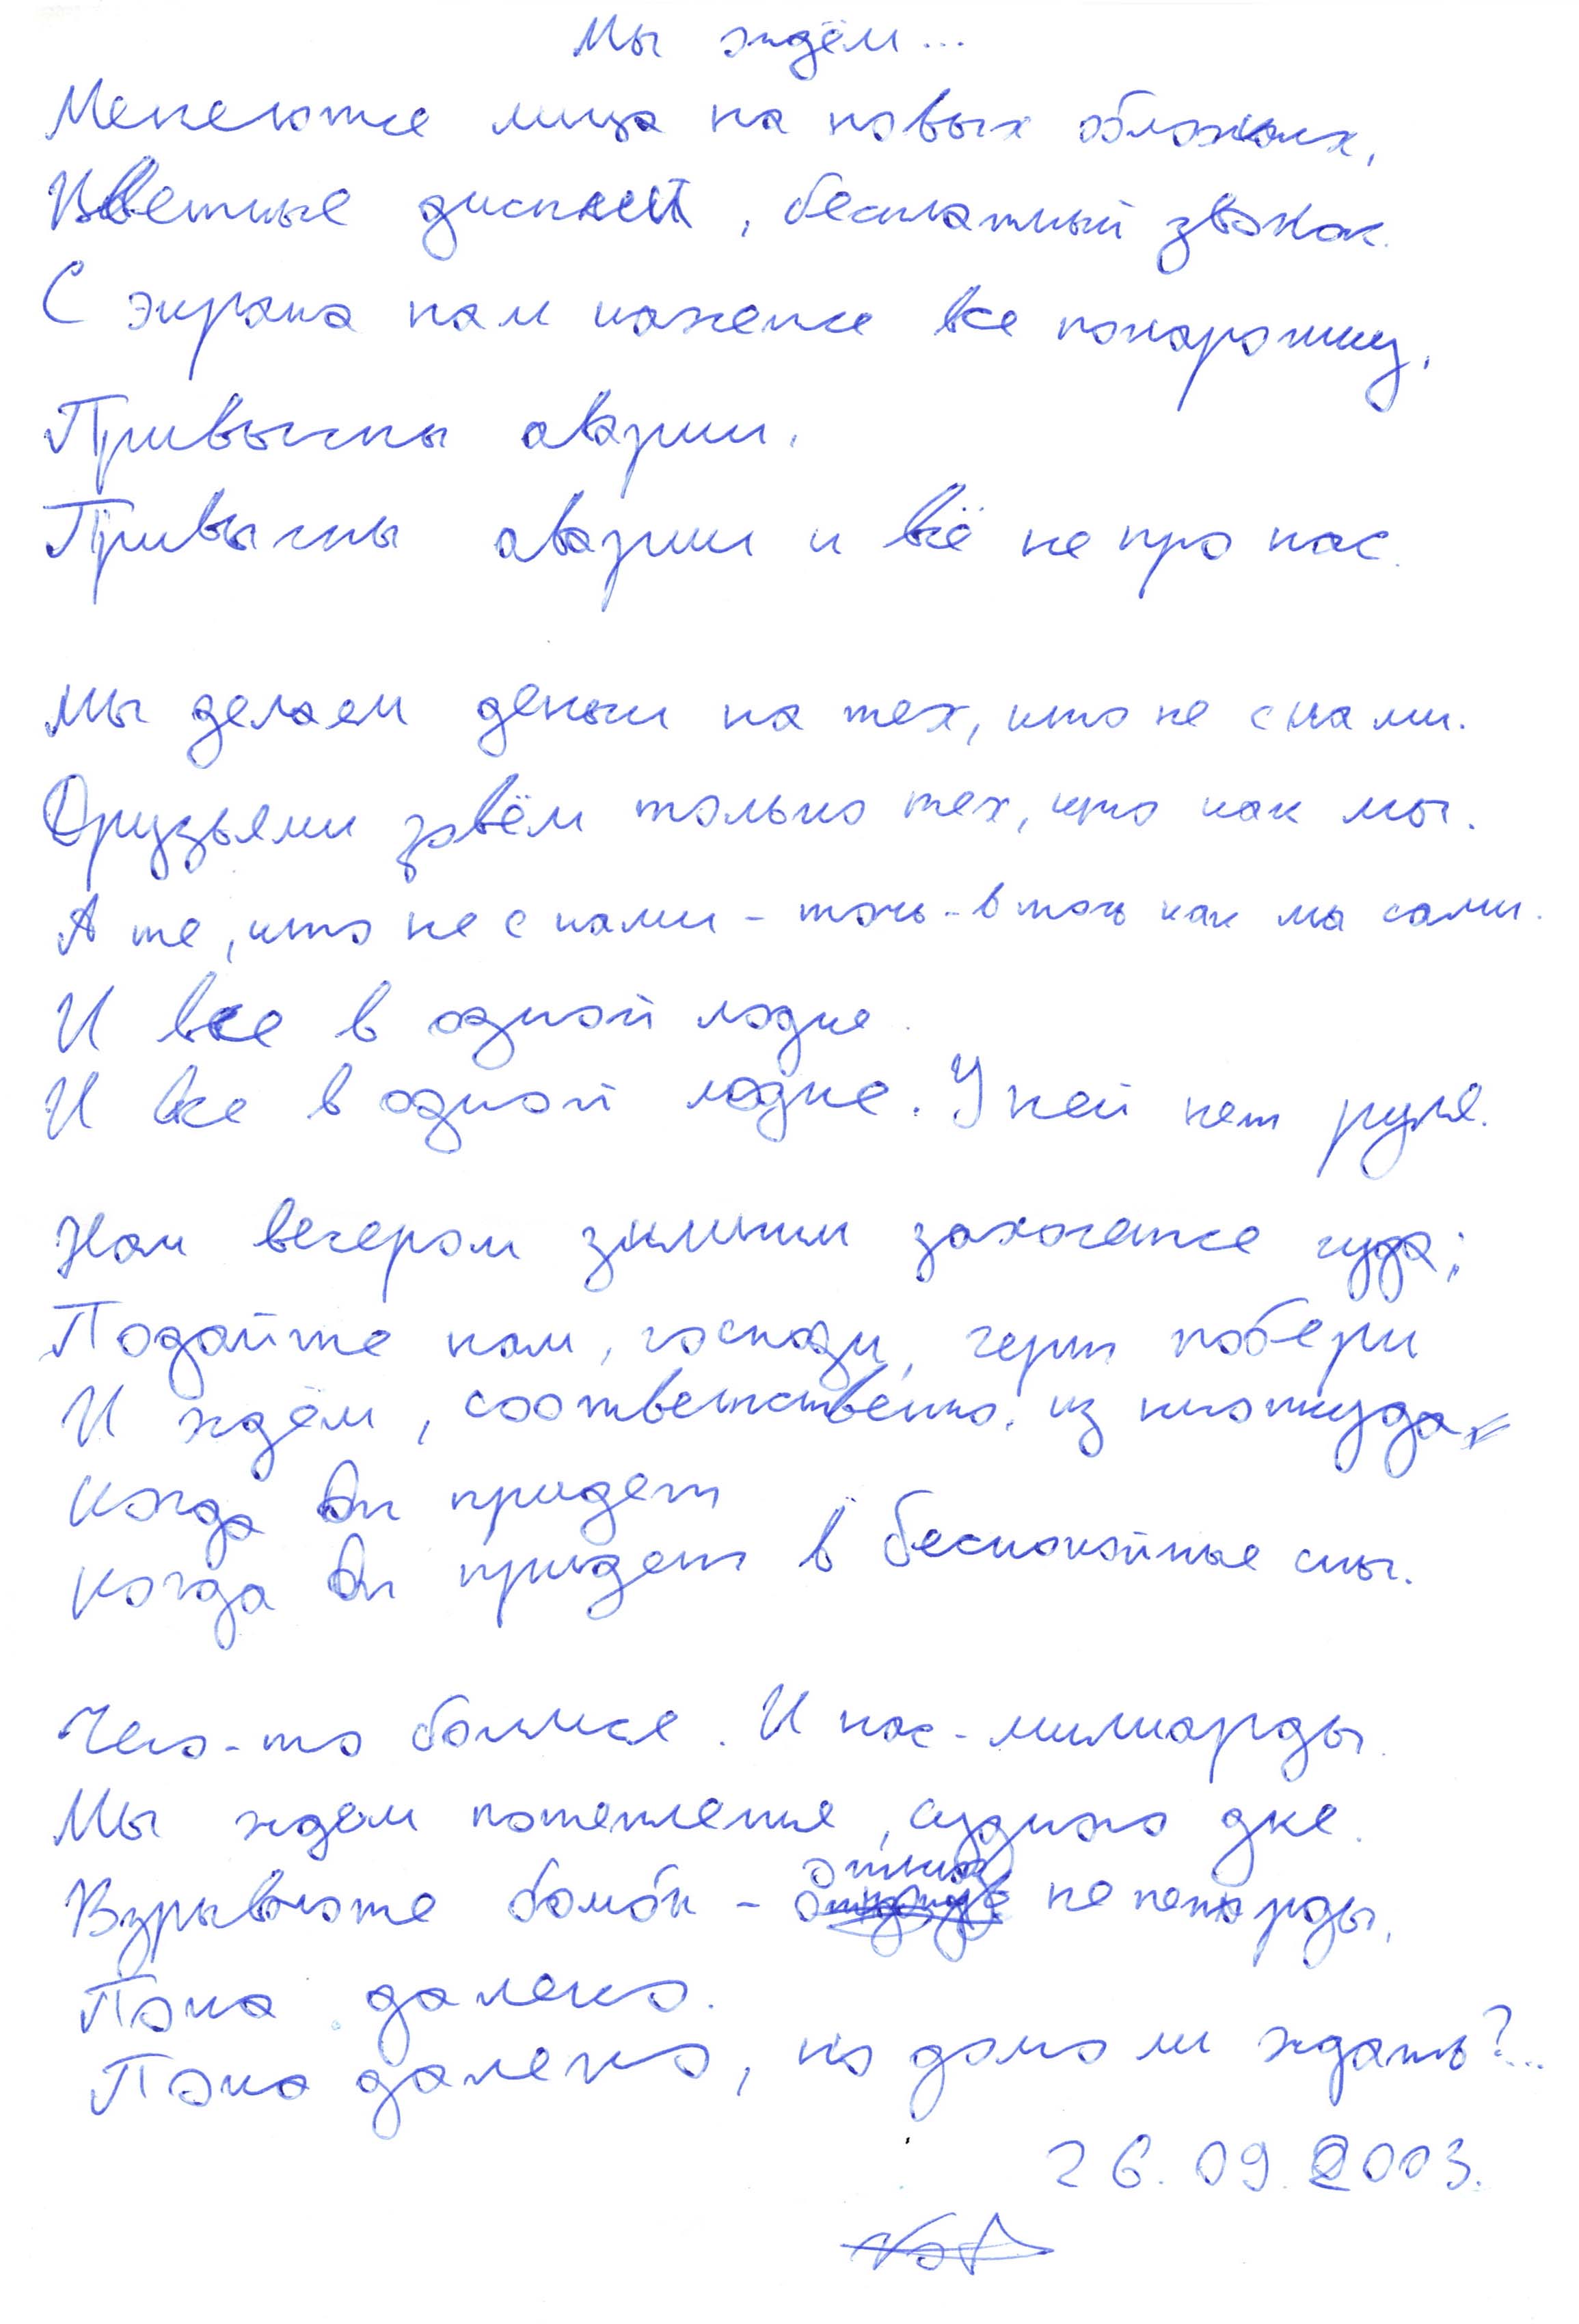 Мы ждём...
Меняются лица на новых обложках,
Цветные дисплеи, бесплатный звонок.
С экрана нам кажется все понарошку,
Привычны аварии.
Привычны аварии и всё не про нас.
Мы делаем деньги на тех, кто не с нами.
Друзьями зовём только тех, кто как мы.
А те, кто не с нами - точь-в точь как мы сами.
И все в одной лодке.
И все в одной лодке. У ней нет руля.
Нам вечером зимним захочется чуда;
Подайте нам, господи, черт побери
И ждём, соответственно, из ниоткуда
Когда Он придет
Когда Он придет в беспокойные сны.
Чего-то боимся. И нас - миллиарды.
Мы ждем потепления, судного дня.
Взрываются бомбы - отнюдь не петарды,
Пока далеко.
Пока далеко, но долго ли ждать?...
26.09.2003.